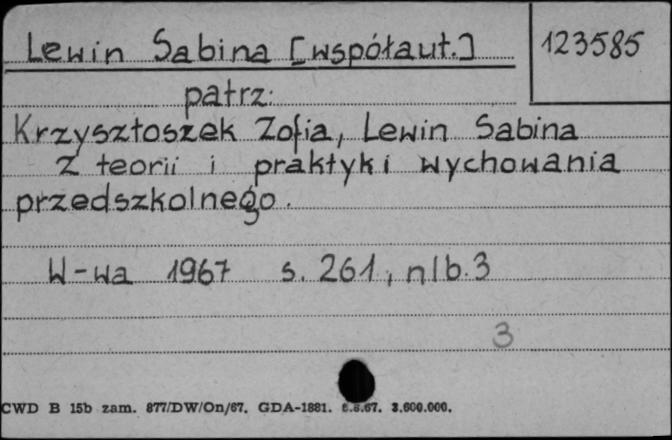 Lewin Sabina [współaut.]
123585
patrz:
Krzysztoszek Zofia, Lewin Sabina
Z teorii i praktyki wychowania
przedszkolnego.
W-wa 1967 s. 261, nlb. 3
3
CWD B 15b zam. 877/DW/On/67. GDA-1881. 6.67. 3.600.000.